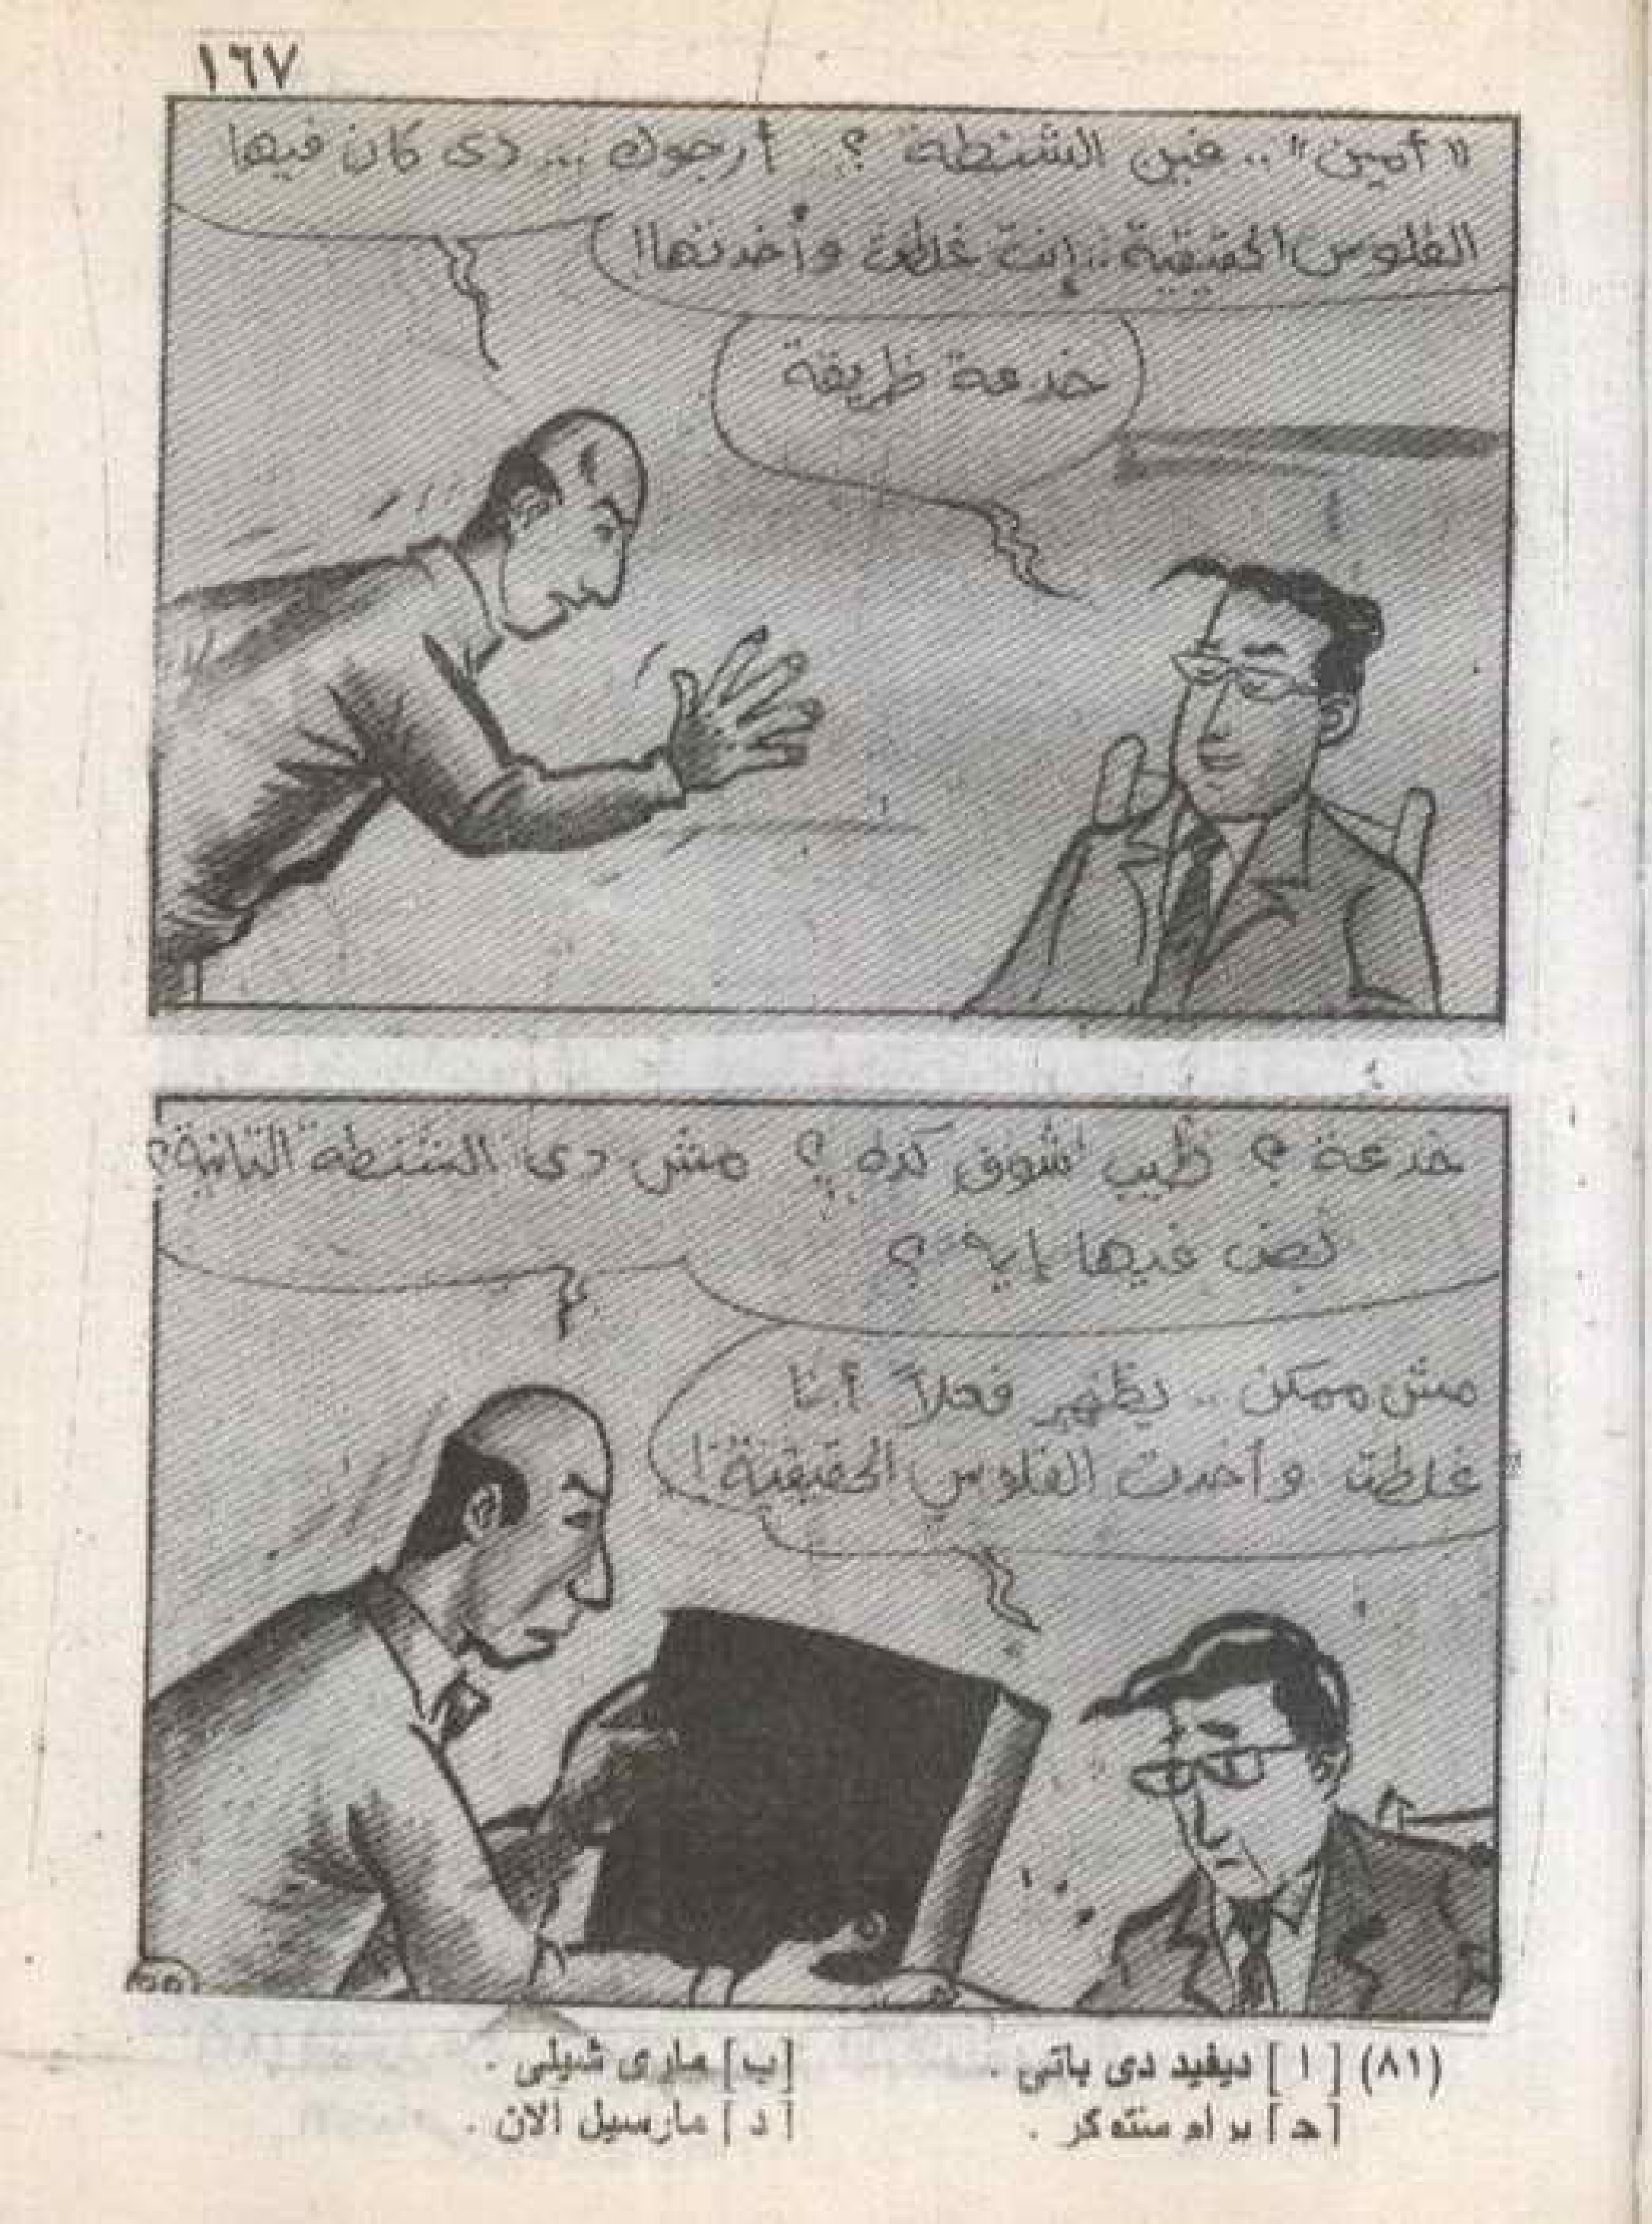 ١٦٧
"أمين" .. فين الشنطة ؟ أرجوك ... دى كان فيها
الفلوس الحقيقية .. إنت غلطت وأخدتها !
خدعة ظريفة
خدعة ؟ طيب شوف كده ؟ مش دى الشنطة التانية ؟
بص فيها إيه ؟
مش ممكن .. يظهر فعلاً أنا
غلطت وأخدت الفلوس الحقيقية !
٥٥
(٨١) [ ا ] ديفيد دى باتى . [ب] مارى شيلى .
[جـ] برام ستوكر . [ د ] مارسيل آلان .